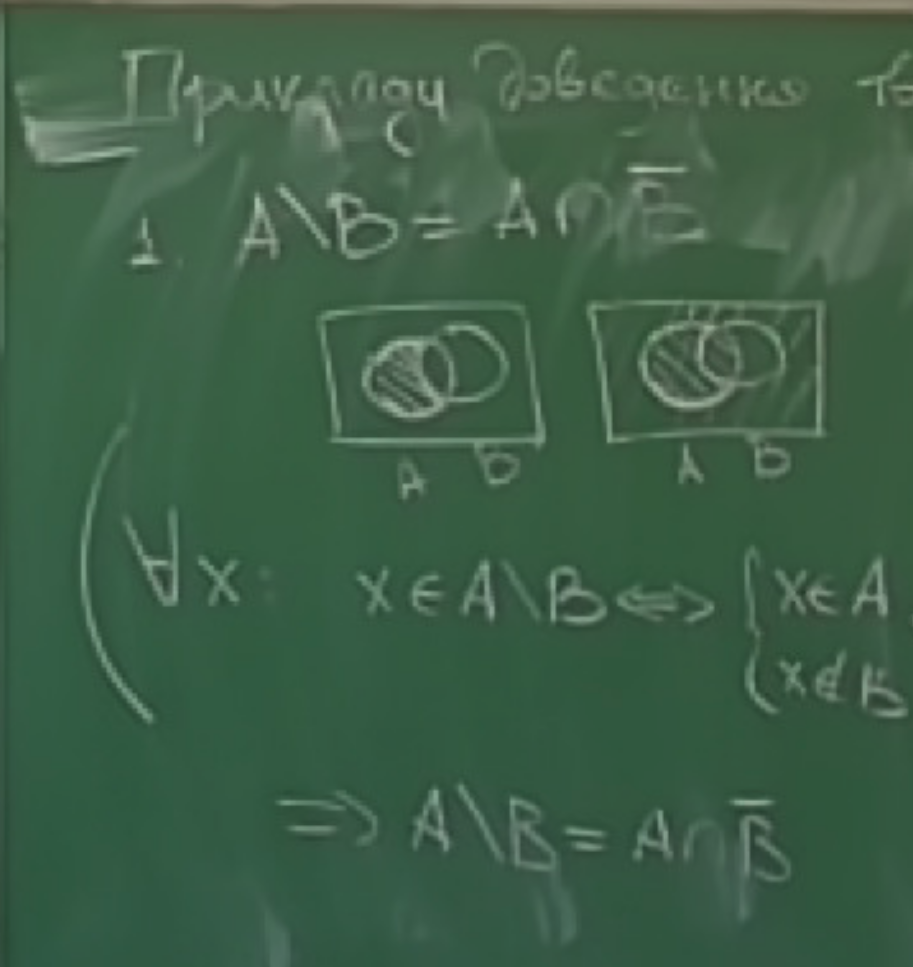 Приклади доведення
1. A\B = A∩B̅
A B A B
∀x: x∈A\B ⇔ { x∈A
x∉B
⇒ A\B = A∩B̅